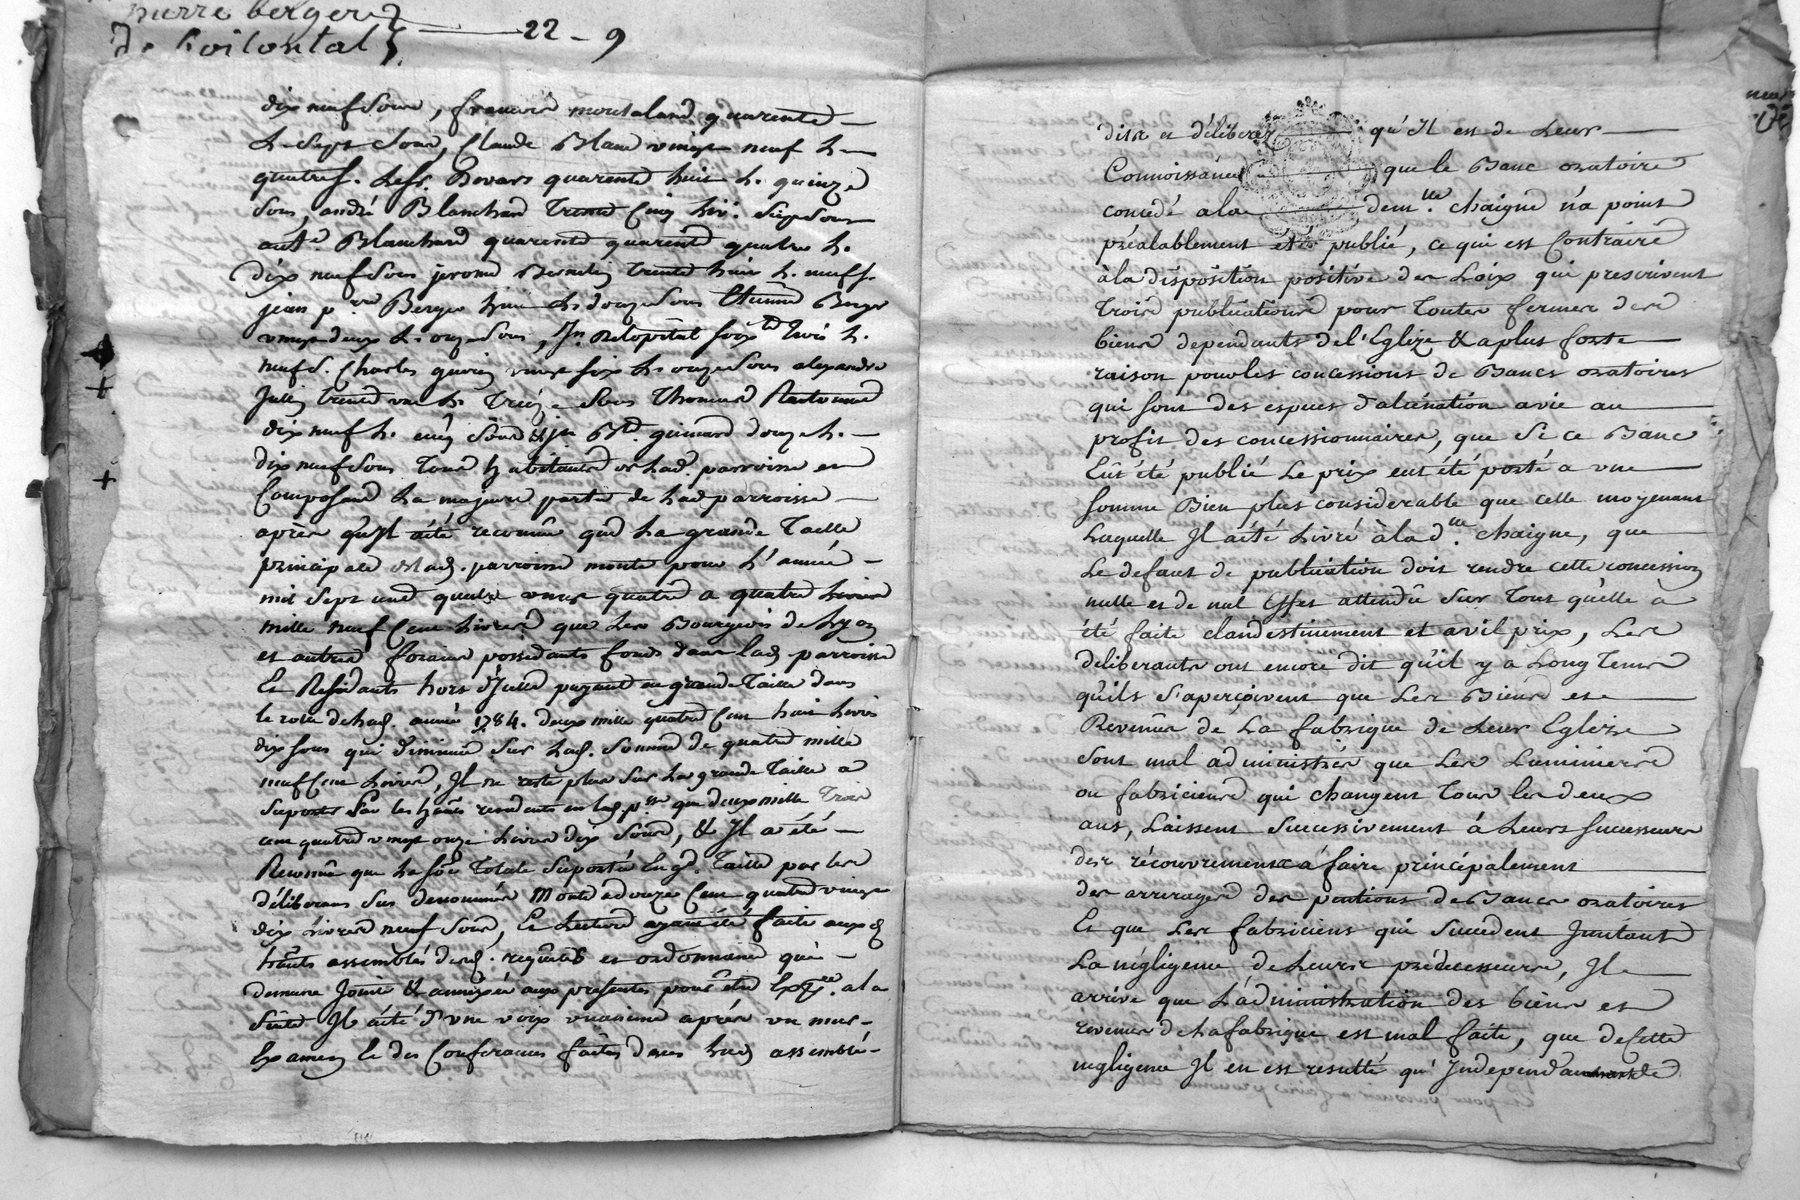 pierre berger
22 - 9
dix neuf sous, francois montaland quarente
L. sept sous, Claude Blanc vingt neuf L.
quatre s. quarente huit L. quinze
sous, andré Blanchard trente Cinq Liv. six sous
Blanchard quarente quarente quatre L.
dix neuf sous jerome trente huit L. neuf s.
jean p.re Berger huit L. douze sous Etienne Berger
vingt deux L. onze sous, trois L.
neuf s. Charles vingt six L. onze sous alexandre
Julien trente une L. treize sous Thomas
dix neuf L. cinq sous & guinard douze L.
dix neuf sous tous habitants de lad. parroisse et
Composant La majeure partie de lad parroisse
après qu'Il a été reconnu que La grande Taille
principale de lad. parroisse monte pour L'année
mil sept cent quatre vingt quatre a quatre
mille neuf Cent Livres que Les Bourgeois de Lyon
et autres forains possedants fonds dans lad parroisse
Et Residants hors d'Icelle payent en grande Taille dans
le rolle de lad. année 1784. deux mille quatre Cent huit Livres
dix sous qui diminué sur lad. somme de quatre mille
neuf Cent Livres, Il ne reste plus sur La grande Taille a
suporter par les residents en lad. p.sse que deux mille Trois
cent quatre vingt onze Livres dix sous, & Il a été
Reconnu que La Totale suportée En g.de Taille par les
déliberans sus denommés Monte a douze Cent quatre vingt
dix Livres neuf sous, Et Lecture ayant été faite auxd
assemblés desd. requête et ordonnance qui
demeure Jointe & annexée aux presentes pour être a la
suite Il a été d'une voix unanime après un mur
Examen Et des Conferances faites dans lad assemblé
dit et déliberez qu'Il est de Leur
Connoissance que le Banc oratoire
concedé a la dem.lle chaigne n'a point
préalablement étés publié, ce qui est Contraire
à la disposition positive des Loix qui prescrivent
trois publications pour toutes fermes des
biens dependants de l'Eglize & a plus forte
raison pour les concessions de Bancs oratoires
qui sont des especes d'alienation a vie au
profit des concessionnaires, que si ce Banc
Eût été publié Le prix eut été porté a une
somme Bien plus considerable que celle moyenant
Laquelle Il a été Livré à la d.lle chaigne, que
Le defaut de publication doit rendre cette concession
nulle et de nul Effet attendu sur Tout qu'elle a
été faite clandestinement et a vil prix, Les
deliberants ont encore dit qu'il y a Long Tems
qu'ils s'aperçoivent que Les Biens et
Revenus de La fabrique de Leur Eglize
sont mal administrés que Les Luminiers
ou fabriciens qui changent Tous les deux
ans, Laissent successivement à Leurs successeurs
des récouvrements a faire principalement
des arrerages des pentions de Bancs oratoires
Et que Les fabriciens qui succedent Imitant
La négligence de Leurs prédecesseurs, Il
arrive que L'administration des biens et
revenus de La fabrique est mal faite, que de Cette
négligence Il en est resulté qu'Independ de